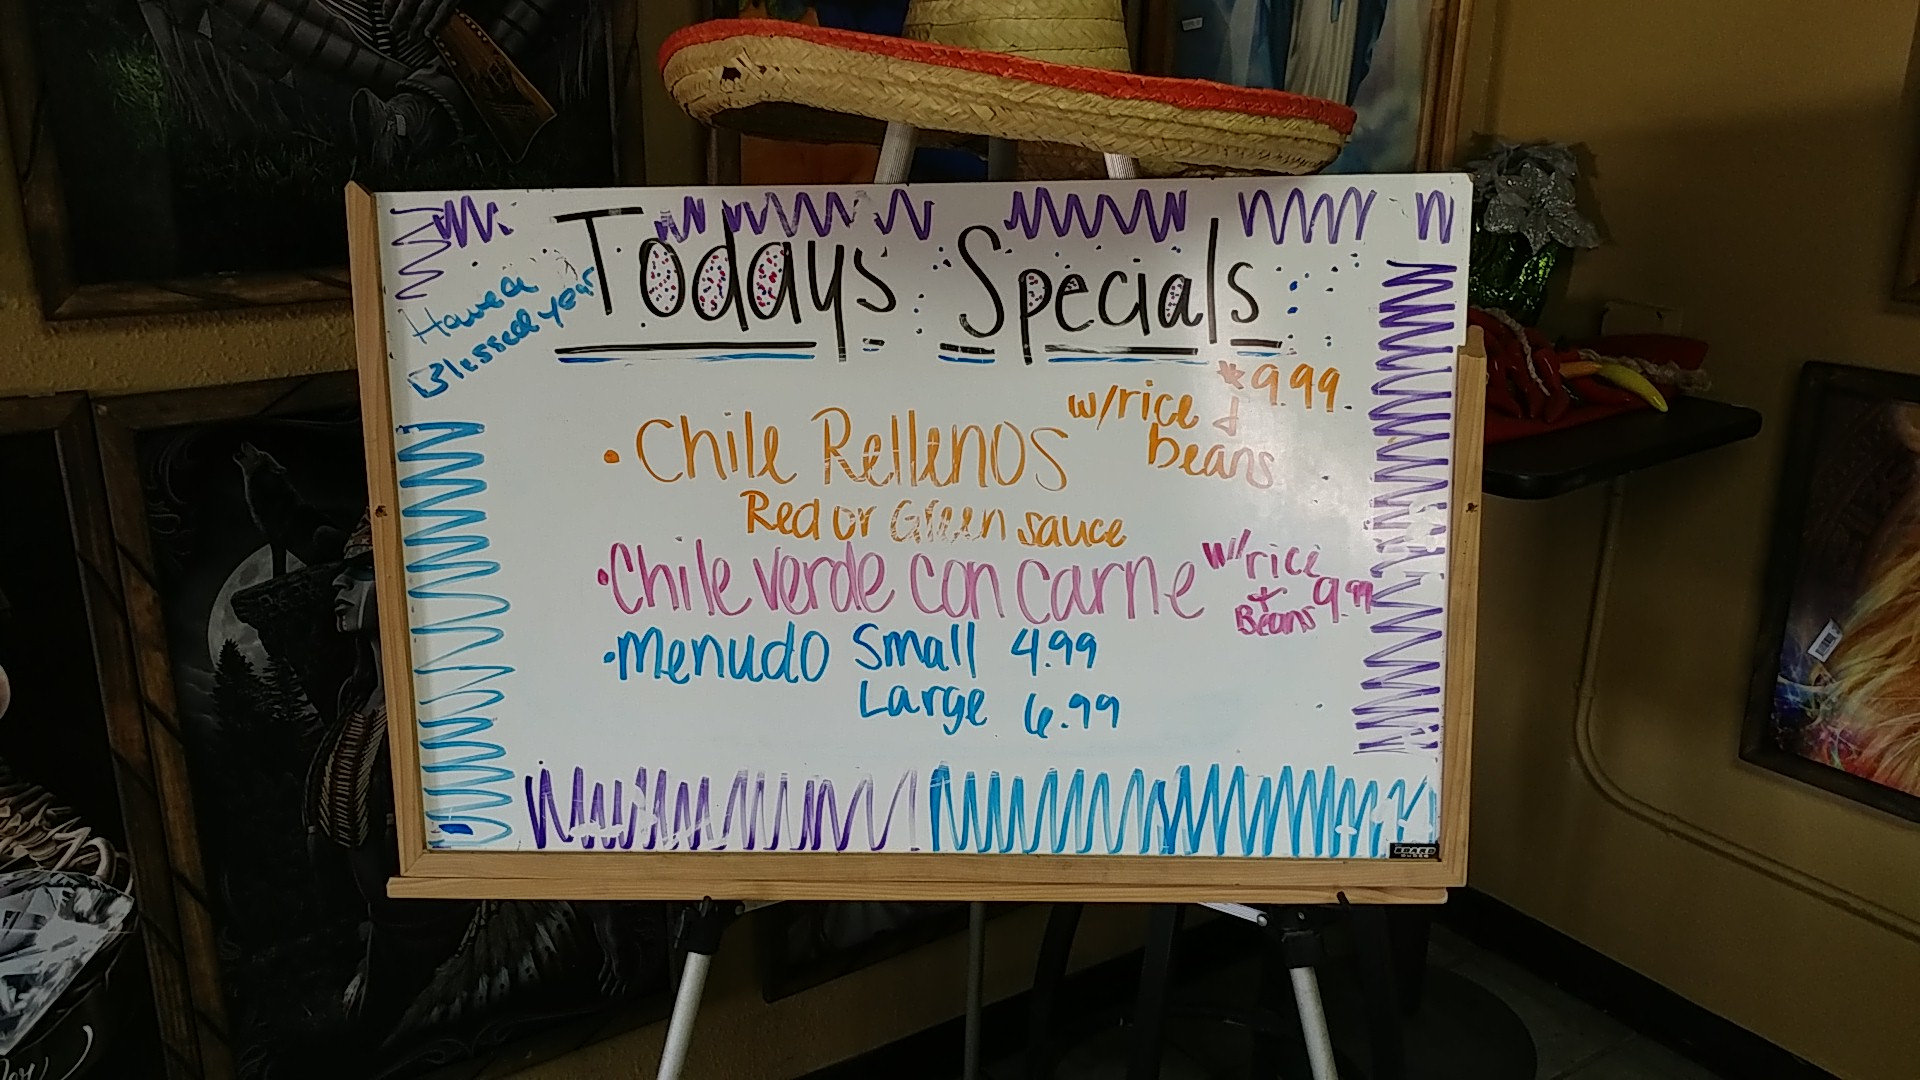 Have a
Blessed year
Todays Specials
• Chile Rellenos w/rice & beans *9.99
Red or Green sauce
• Chile verde con carne w/rice + Beans 9.99
• Menudo Small 4.99
Large 6.99
BOARD
DUDES